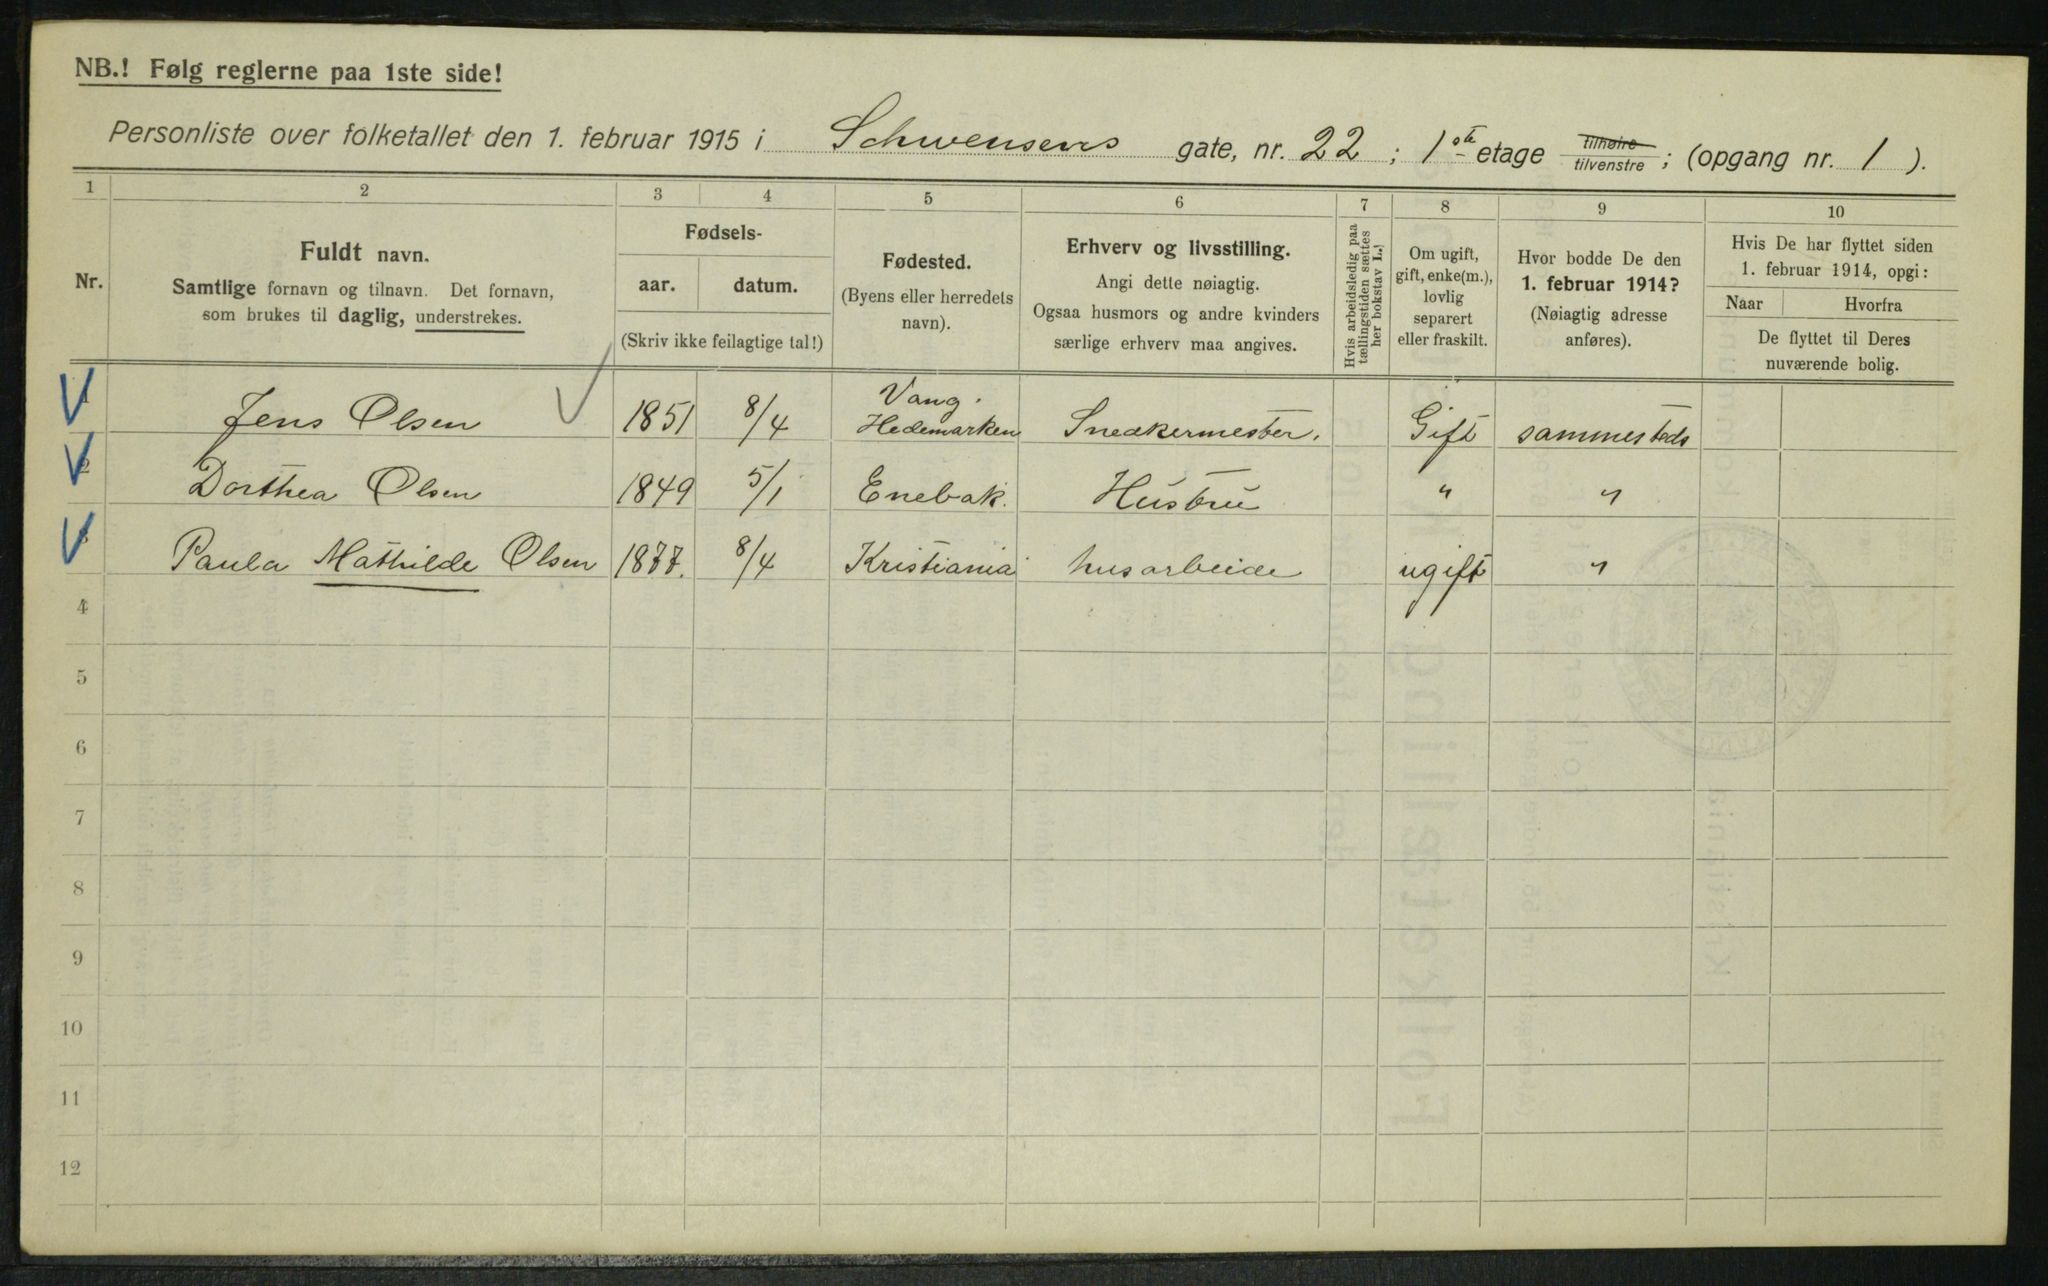 NB.! Følg reglerne paa 1ste side!
Personliste over folketallet den 1. februar 1915 i Schwensens gate, nr. 22 ; 1ste etage tilhøire tilvenstre ; (opgang nr. 1 ).
1 2 3 4 5 6 7 8 9 10
Nr.
Fuldt navn.
Samtlige fornavn og tilnavn. Det fornavn,
som brukes til daglig, understrekes.
Fødsels-
aar. datum.
(Skriv ikke feilagtige tal!)
Fødested.
(Byens eller herredets
navn).
Erhverv og livsstilling.
Angi dette nøiagtig.
Ogsaa husmors og andre kvinders
særlige erhverv maa angives.
Hvis arbeidsledig paa
tællingstiden sættes
her bokstav L.!
Om ugift,
gift, enke(m.),
lovlig
separert
eller fraskilt.
Hvor bodde De den
1. februar 1914?
(Nøiagtig adresse
anføres).
Hvis De har flyttet siden
1. februar 1914, opgi:
Naar Hvorfra
De flyttet til Deres
nuværende bolig.
1 Jens Olsen 1851 8/4 Vang. Hedemarken Snedkermester. Gift sammesteds
2 Dorthea Olsen 1849 5/1 Enebak. Hustru " "
3 Paula Mathilde Olsen 1877. 8/4 Kristiania husarbeide ugift "
4
5
6
7
8
9
10
11
12